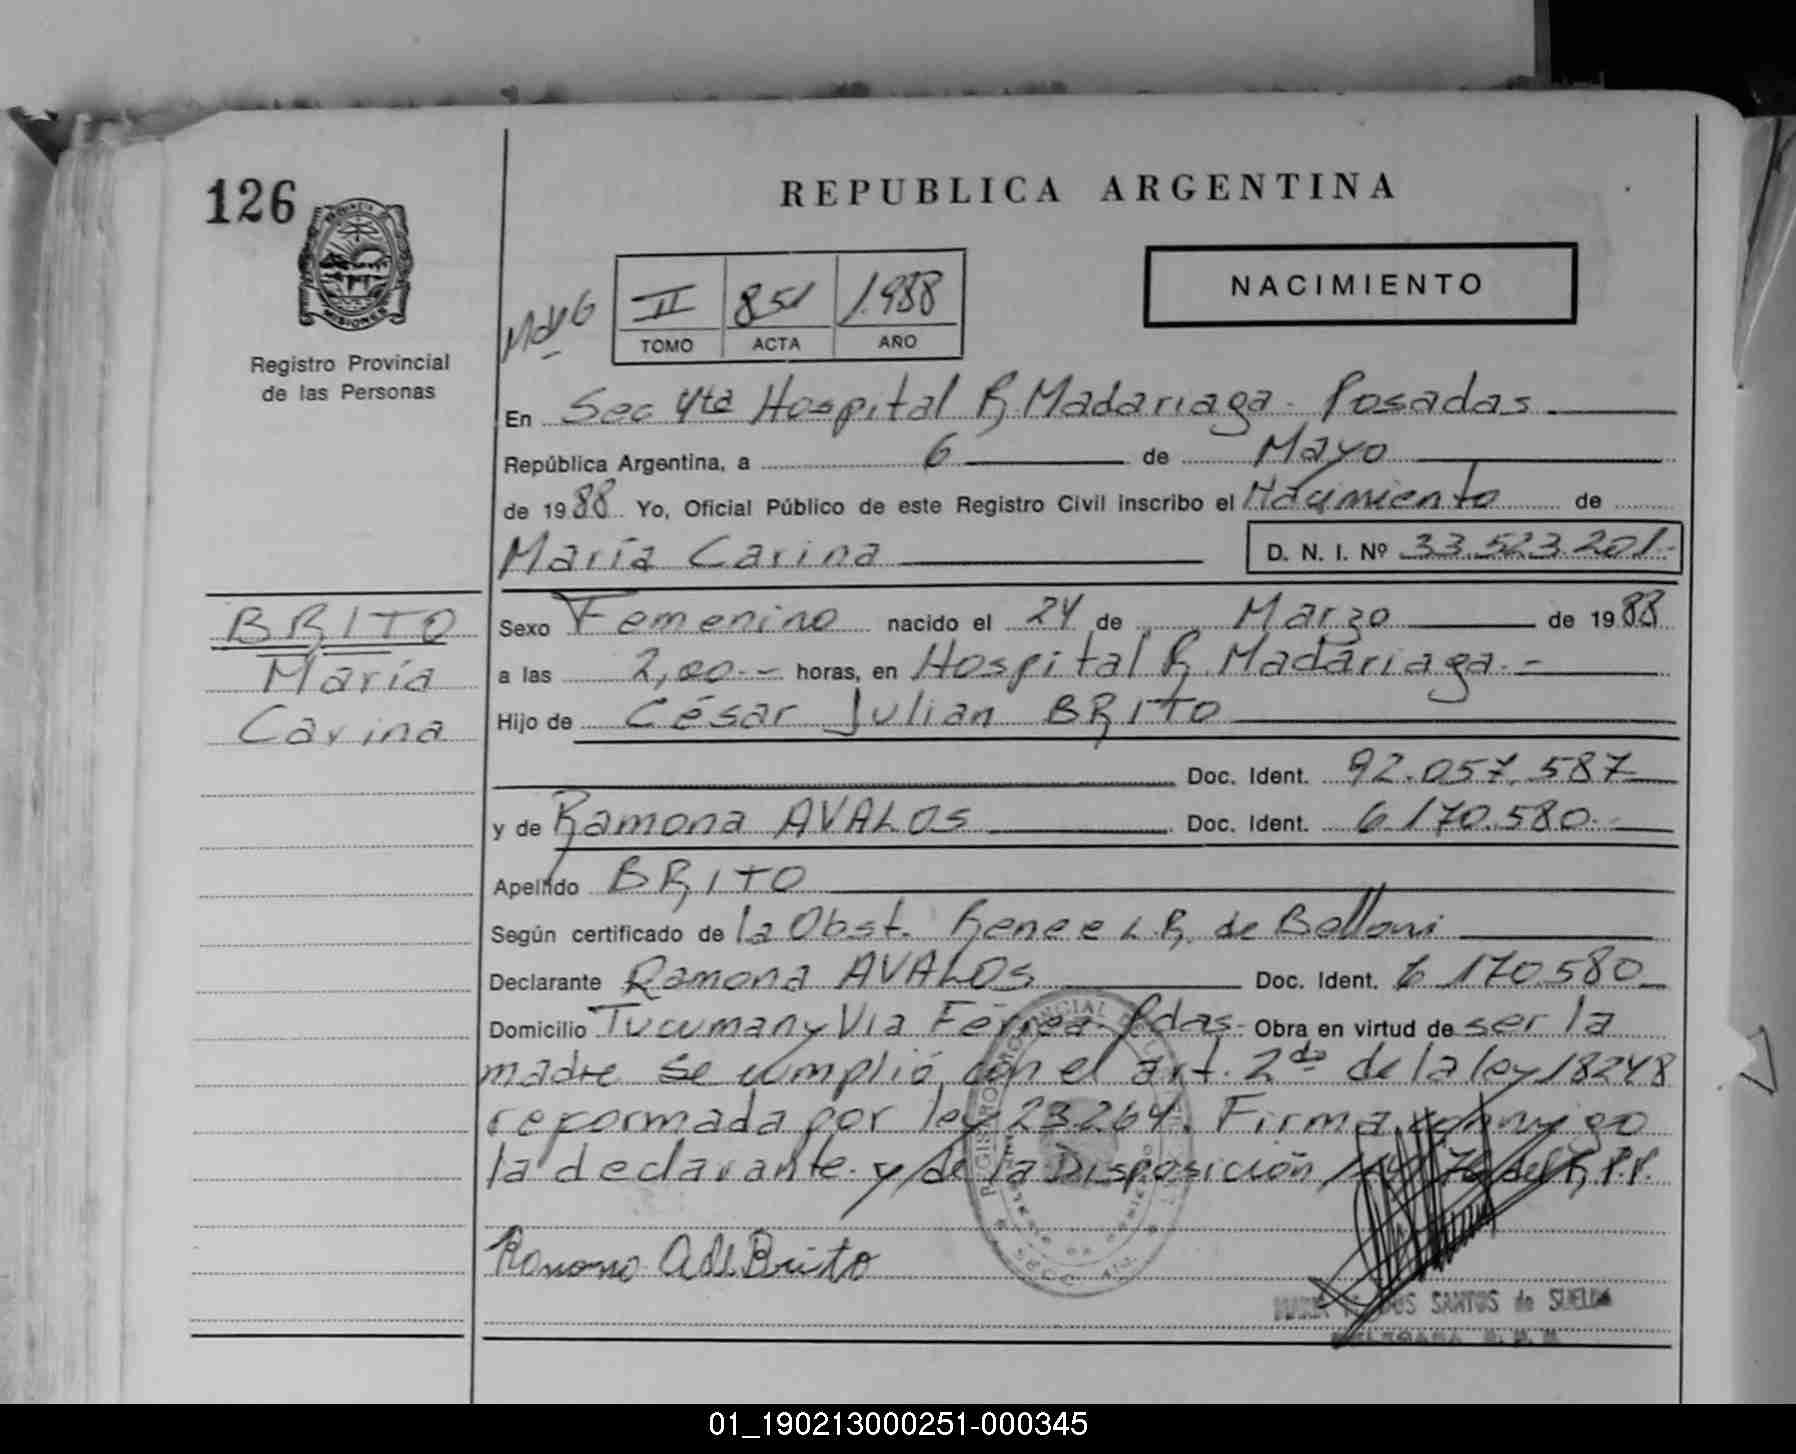 126
REPUBLICA ARGENTINA
PROVINCIA DE
MISIONES
Registro Provincial
de las Personas
II 851 1.988
TOMO ACTA AÑO
NACIMIENTO
En Sec 4ta Hospital R. Madariaga - Posadas
República Argentina, a 6 de Mayo
de 1988 Yo, Oficial Público de este Registro Civil inscribo el Nacimiento de
María Carina D. N. I. Nº 33.523.201-
BRITO
María
Carina
Sexo Femenino nacido el 24 de Marzo de 1988
a las 2,00-- horas, en Hospital R. Madariaga.-
Hijo de César Julian BRITO
Doc. Ident. 92.057.587
y de Ramona AVALOS Doc. Ident. 6.170.580-
Apellido BRITO
Según certificado de la Obst. Renee L R. de Belloni
Declarante Ramona AVALOS Doc. Ident. 6.170.580
Domicilio Tucuman y Via Férrea - Pdas - Obra en virtud de ser la
madre se cumplió con el art. 2do de la ley 18248
reformada por ley 23.264. Firma conmigo
la declarante. y de la Disposición del R.P.P.
Ramona A de Brito
DOS SANTOS de SUELDA
01_190213000251-000345